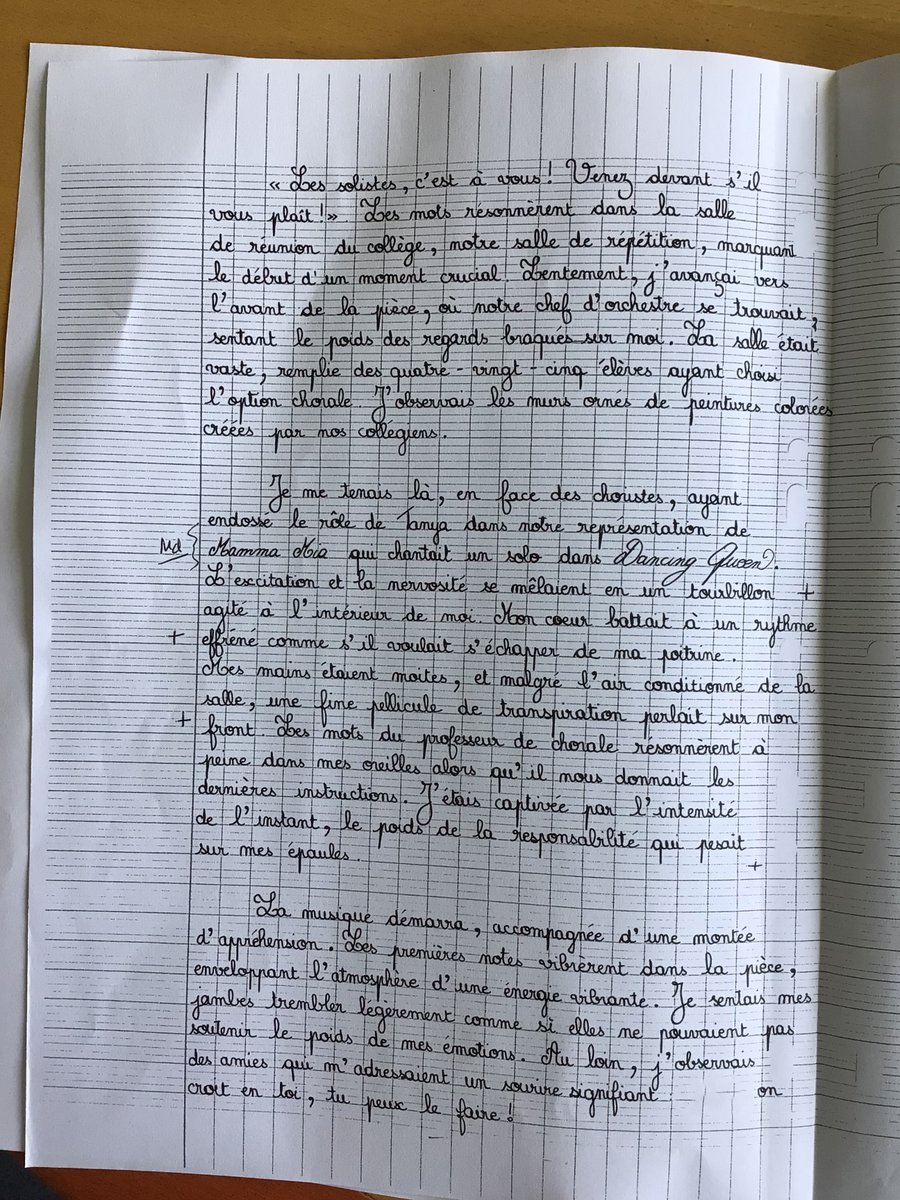 « Les solistes, c'est à vous ! Venez devant s'il
vous plaît !» Les mots résonnèrent dans la salle
de réunion du collège, notre salle de répétition, marquant
le début d'un moment crucial. Lentement, j'avançai vers
l'avant de la pièce, où notre chef d'orchestre se trouvait,
sentant le poids des regards braqués sur moi. La salle était
vaste, remplie des quatre-vingt-cinq élèves ayant choisi
l'option chorale. J'observais les murs ornés de peintures colorées
créées par nos collégiens.
Je me tenais là, en face des choristes, ayant
endossé le rôle de Tanya dans notre représentation de
Md
Mamma Mia qui chantait un solo dans Dancing Queen.
L'excitation et la nervosité se mêlaient en un tourbillon +
agité à l'intérieur de moi. Mon coeur battait à un rythme
+ effréné comme s'il voulait s'échapper de ma poitrine.
Mes mains étaient moites, et malgré l'air conditionné de la
salle, une fine pellicule de transpiration perlait sur mon
+ front. Les mots du professeur de chorale résonnèrent à
peine dans mes oreilles alors qu'il nous donnait les
dernières instructions. J'étais captivée par l'intensité
de l'instant, le poids de la responsabilité qui pesait
sur mes épaules.
+
La musique démarra, accompagnée d'une montée
d'appréhension. Les premières notes vibrèrent dans la pièce,
enveloppant l'atmosphère d'une énergie vibrante. Je sentais mes
jambes trembler légèrement comme si elles ne pouvaient pas
soutenir le poids de mes émotions. Au loin, j'observais
des amies qui m'adressaient un sourire signifiant : on
croit en toi, tu peux le faire !